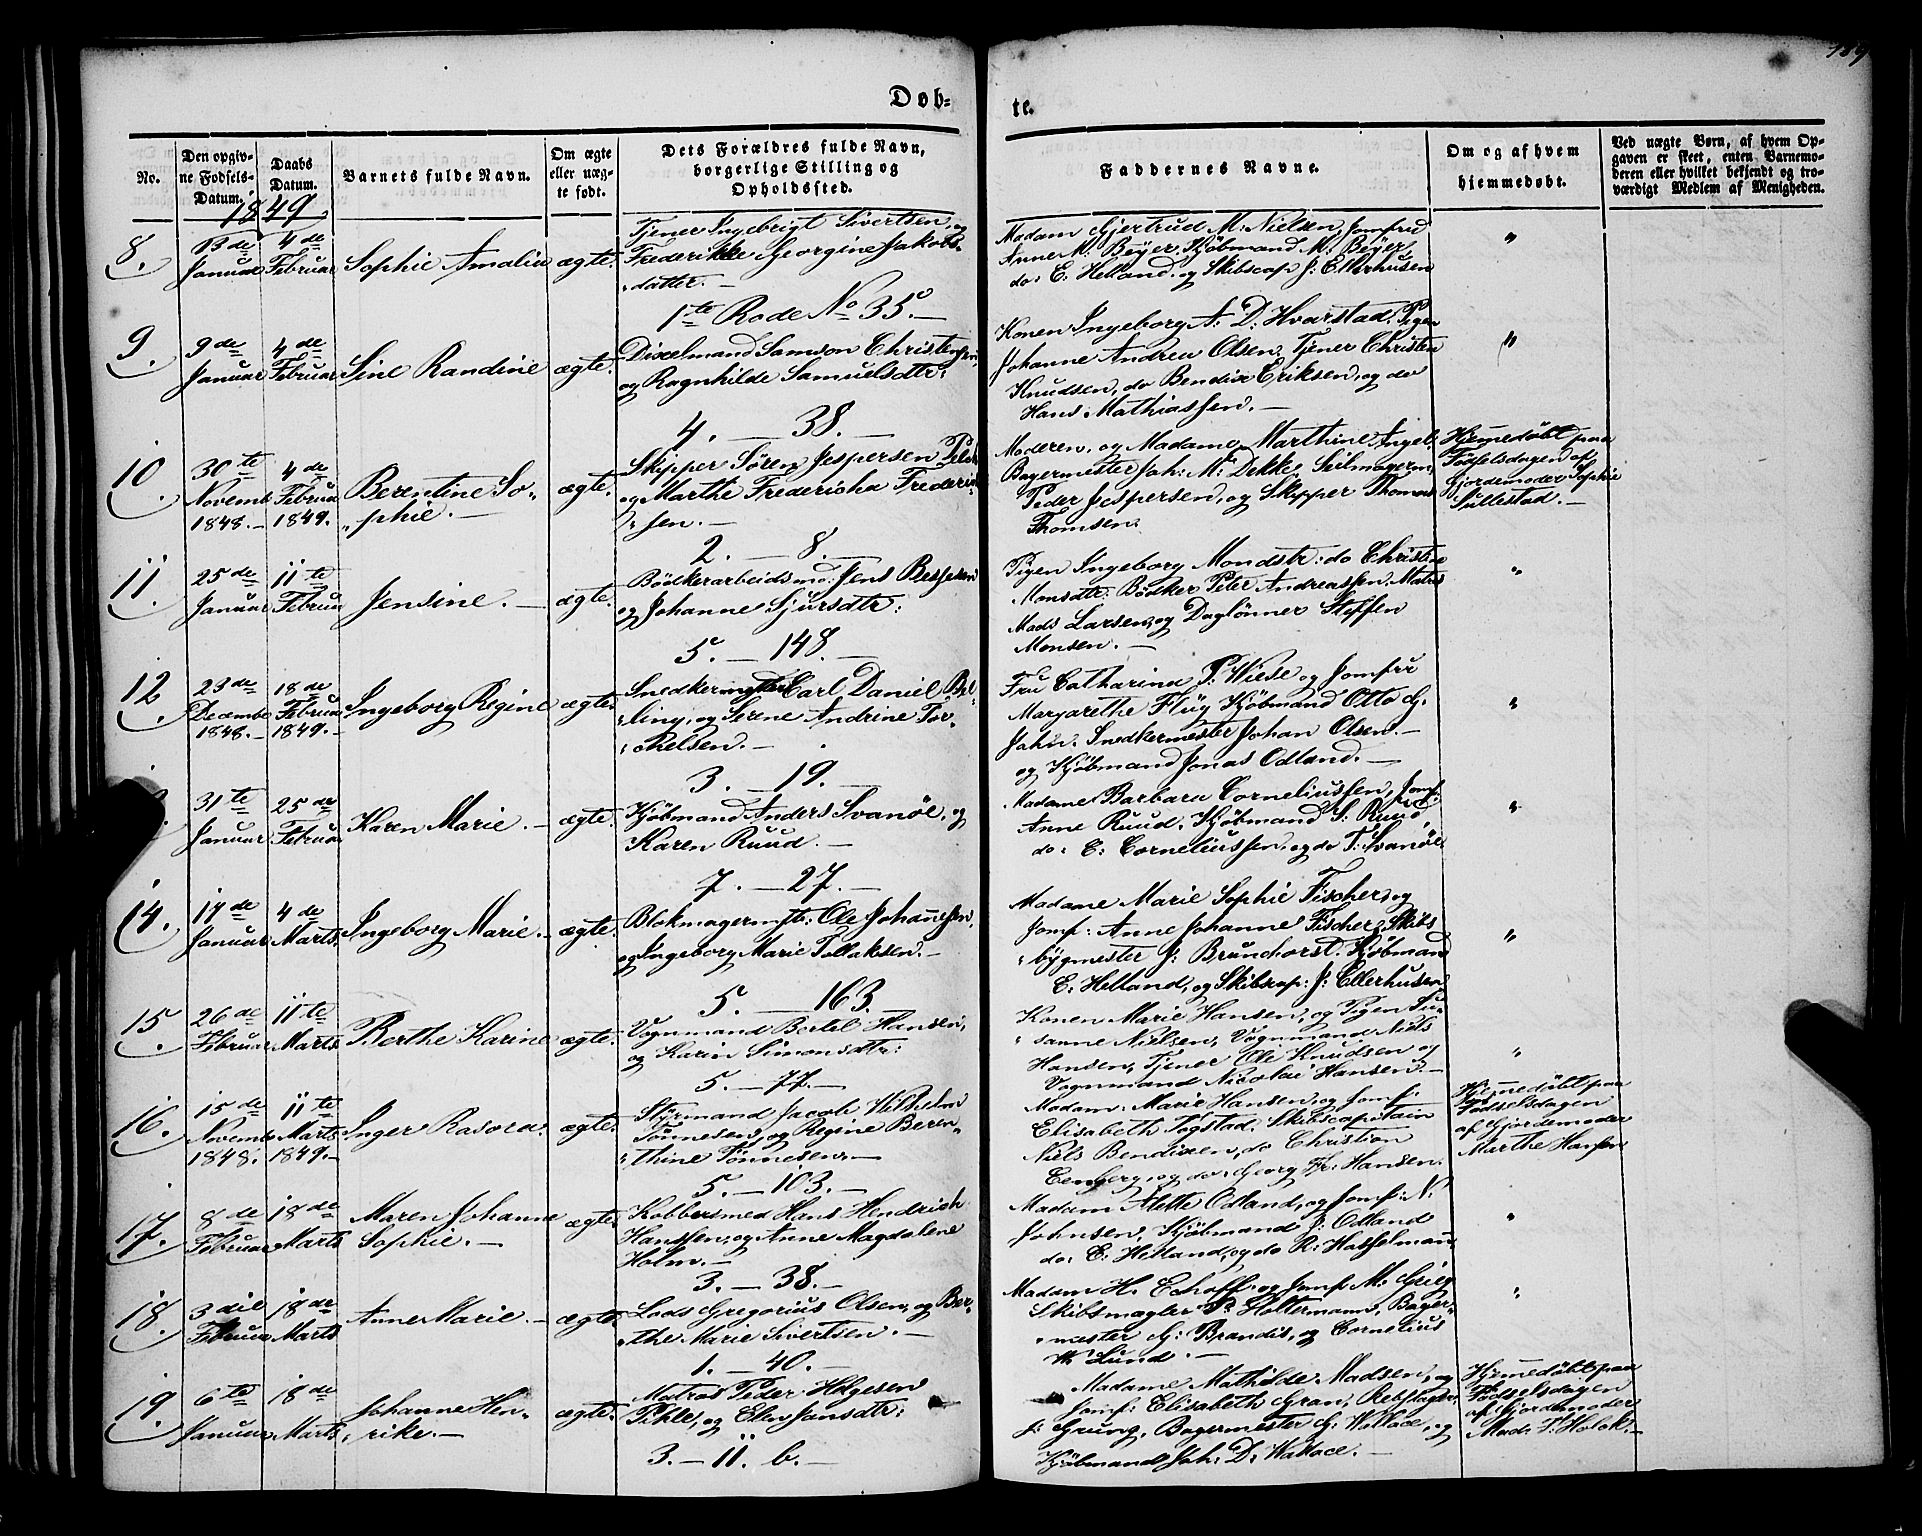 189
Døb-
te.
No.
Den opgiv-
ne Fødsels-
Datum.
Daabs
Datum.
Barnets fulde Navn.
Om ægte
eller uæg-
te født.
Dets Forældres fulde Navn,
borgerlige Stilling og
Opholdssted.
Faddernes Navne.
Om og af hvem
hjemmedøbt.
Ved uægte Børn, af hvem Op-
gaven er skeet, enten Barnemo-
deren eller hvilket bekjendt og tro-
værdigt Medlem af Menigheden.
1849
8.
13de
Januar
4de
Februar
Sophie Amalia
ægte.
Tjener Ingebrigt Sivertsen, og
Frederikke Georgine Jakobs-
datter.
1te Rode No 35.
Madam Gjertrud M. Nielsen, Jomfrue
Anne M. Beyer, Kjøbmand M. Beyer,
do: E. Helland, og Skibscap: J. Ellerhusen
"
9.
9de
Januar
4de
Februar
Sine Randine
ægte.
Dixelmand Samson Christensen,
og Ragnhilde Samuelsdtr:
4. — 38. —
Konen Ingeborg A. D: Hvarstad, Pigen
Johanne Andrea Olsen, Tjener Christen
Knudsen, do Bendix Eriksen, og do
Hans Mathiassen. —
"
10.
30te
Novemb.
1848. —
4de
Februar
1849.
Berentine So-
phie. —
ægte.
Skipper Søren Jespersen
og Marthe Fredericha Frederik-
sen. —
2. — 8. —
Moderen, og Madame Marthine Angel:
Bagermester Joh: M: Dekke, Seilmagerm:
Peder Jespersen, og Skipper Thomas
Thomsen.
Hjemmedøbt paa
Fødselsdagen af
Gjordemoder Sophie
Sullestad. —
11.
25de
Januar
11te
Februar
Jensine. —
ægte.
Bødkerarbeidsmd: Jens Bessesen
og Johanne Sjursdtr:
5. — 148. —
Pigen Ingeborg Monsdtr: do Christine
Monsdtr: Bødker Peter Andreassen, Matros
Mads Larsen, og Daglønner Steffen
Monsen. —
"
12.
23de
Decembr
1848. —
18de
Februar
1849. —
Ingeborg Regine
ægte
Snedkermester Carl Daniel Bel-
ling, og Serene Andrine Tor-
kelsen. —
3. — 19. —
Fru Catharina P. Wiese og Jomfru
Margarethe Flug, Kjøbmand Otto G.
Jahn. Snedkermester Johan Olsen. —
og Kjøbmand Jonas Odland. —
"
31te
Januar
25de
Februar
Karen Marie. —
ægte.
Kjøbmand Anders Svanøe, og
Karen Ruud. —
7. — 27. —
Madame Barbara Corneliussen, Jomf:
Anne Ruud, Kjøbmand S. Ruud,
do: C: Corneliussen, og do T. Svanøe
"
14.
17de
Januar
4de
Marts
Ingeborg Marie. —
ægte.
Blokmagermstr: Ole Johannesen,
og Ingeborg Marie Tollaksen. —
5. — 163. —
Madame Marie Sophie Fischer, og
Jomf: Anne Johanne Fischer, Skibs
bygmester J: Brunchorst. Kjøbmand
E: Helland, og Skibscap: J: Ellerhusen
"
15.
26de
Februar
11te
Marts
Berthe Karine
ægte.
Vognmand Bertel Hansen,
og Karin Simonsdtr:
5. — 77. —
Konen Marie Hansen, og Pigen Su-
sanne Nielsen, Vognmand Niels
Hansen, Tjener Ole Knudsen og
Vognmand Nicolai Hansen. —
"
16.
15de
Novemb.
1848.
11te
Marts
1849. —
Inger Rasora.
ægte.
Styrmand Jacob Wilhelm
Tønnesen, og Regine Beren-
thine Tønnesen. —
5. — 103. —
Madam: Marie Hansen, og Jomf:
Elisabeth Fagstad. Skibscapitain
Niels Bendixen, do Christian
og do: Georg Fr: Hansen.
Hjemmedøbt paa
Fødselsdagen
af Gjordemoder
Marthe Hansen
17.
8de
Februar
18de
Marts
Maren Johanne
Sophie. —
ægte
Kobbersmed Hans Hendrich
Hanssen, og Anne Magdalene
Holm. —
3. — 38. —
Madam Alette Odland, og Jomf: N.
Johnsen, Kjøbmand J: Odland
do: E: Helland, og do R: Hasselmann
"
18.
3die
Februar
18de
Marts
Anne Marie. —
ægte.
Lods Gregorius Olsen, og Ber-
the Marie Sivertsen. —
1. — 40. —
Madam H. Echoff, og Jomf: M. Grieg
Skibsmægler P. Holtermann, Bager-
mester G: Brandis, og Cornelius
W Lund. —
"
19.
6te
Januar
18de
Marts
Johanne Hen-
rike. —
ægte.
Matros Peder Helgesen
Pihle, og Elen Jansdtr:
3. — 11. b. —
Madame Mathilde Madsen, og
Jomf: Elisabeth Gran, Rebslager
J: Grung, Bagermester G: Wallace, og
Kjøbmand Joh: D: Wallace. —
Hjemmedøbt paa
Fødselsdagen
af Gjordemoder
Mad: V: Holck. —